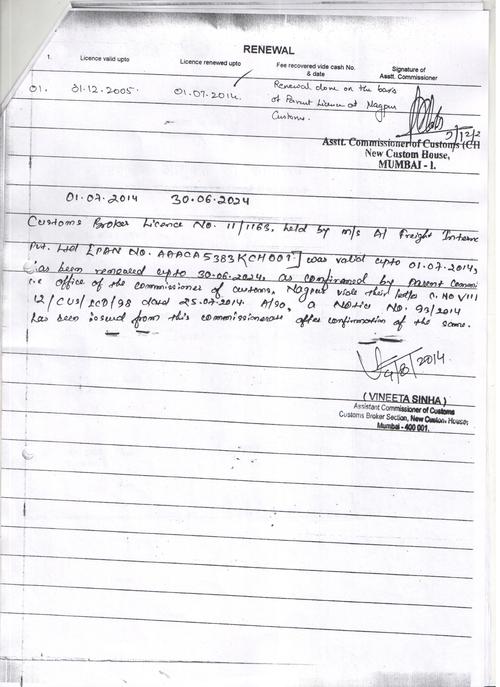 RENEWAL
1. Licence valid upto Licence renewed upto Fee recovered vide cash No. & date Signature of Asstt. Commissioner
01. 31.12.2005. 01.07.2014. Renewal done on the basis
of Parent Licence at Nagpur
Customs.
Asstt. Commissioner of Customs (CH
New Custom House,
MUMBAI - 1.
01.07.2014 30.06.2024
Customs Broker Licence No. 11/1163, held by M/s A/ Freight Interna
Pvt. Ltd [PAN NO. AAACA5383KCH001] was valid upto 01.07.2014,
has been renewed upto 30.06.2024, as confirmed by Parent Commi
i.e office of the commissioner of customs, Nagpur vide their letter C. NO VIII
12/CUS/ICD/98 dated 25.07.2014. Also, a Notice No. 93/2014
has been issued from this commissionerate after confirmation of the same.
9/8/2014
(VINEETA SINHA)
Assistant Commissioner of Customs
Customs Broker Section, New Custom House,
Mumbai - 400 001.